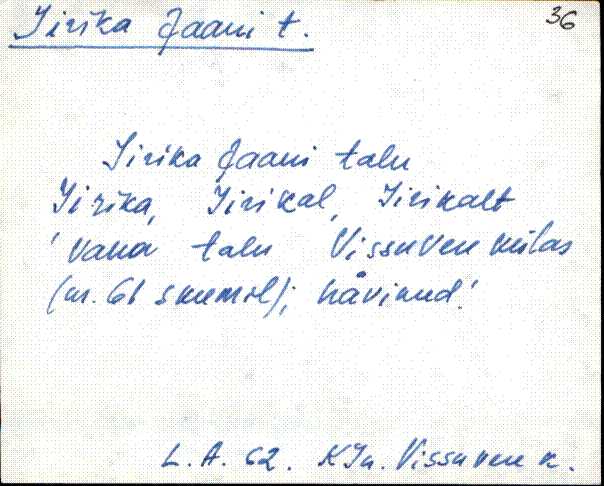 Jirika Jaani t.
36
Jirika Jaani talu
Jirika, Jirikal, Jirikalt
'vana talu Vissuvere külas
(nr. 61 skeemil); hävinud.'
L. A. 62. KJn. Vissuvere k.